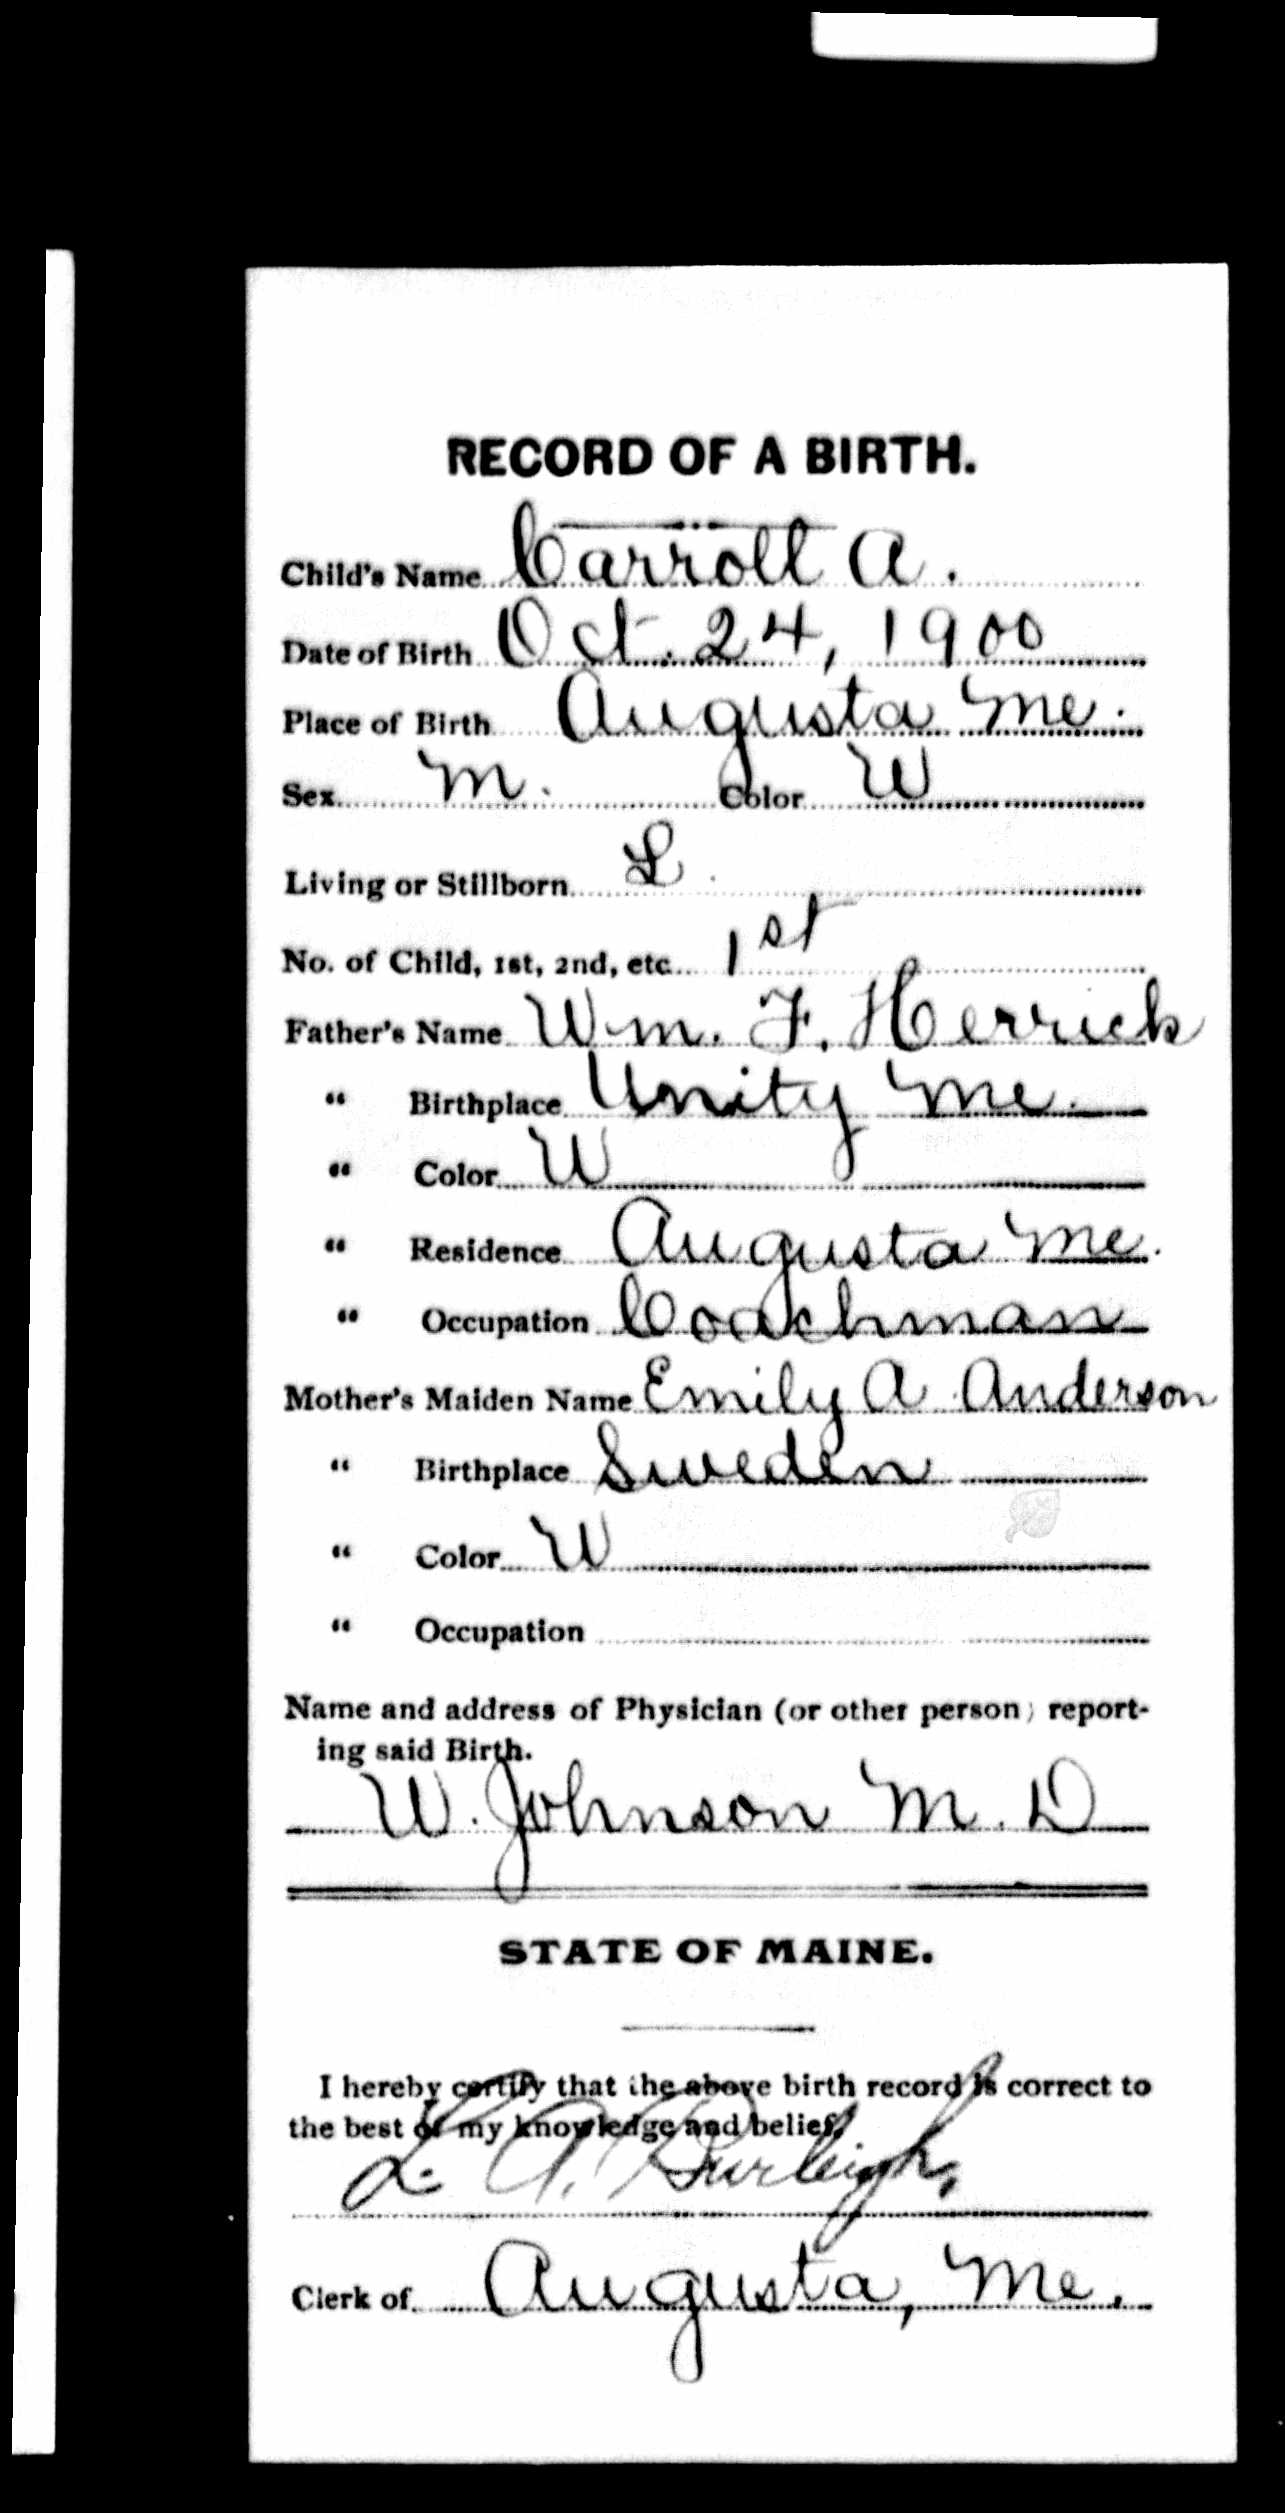 RECORD OF A BIRTH.
Child's Name Carroll A.
Date of Birth Oct. 24, 1900
Place of Birth Augusta Me.
Sex M. Color W
Living or Stillborn L
No. of Child, 1st, 2nd, etc. 1st
Father's Name Wm. F. Herrick
“ Birthplace Unity Me.
“ Color W
“ Residence Augusta Me.
“ Occupation Coachman
Mother's Maiden Name Emily A Anderson
“ Birthplace Sweden
“ Color W
“ Occupation
Name and address of Physician (or other person) report-
ing said Birth.
W. Johnson M. D
STATE OF MAINE.
I hereby certify that the above birth record is correct to
the best of my knowledge and belief,
L. A. Burleigh,
Clerk of Augusta, Me.